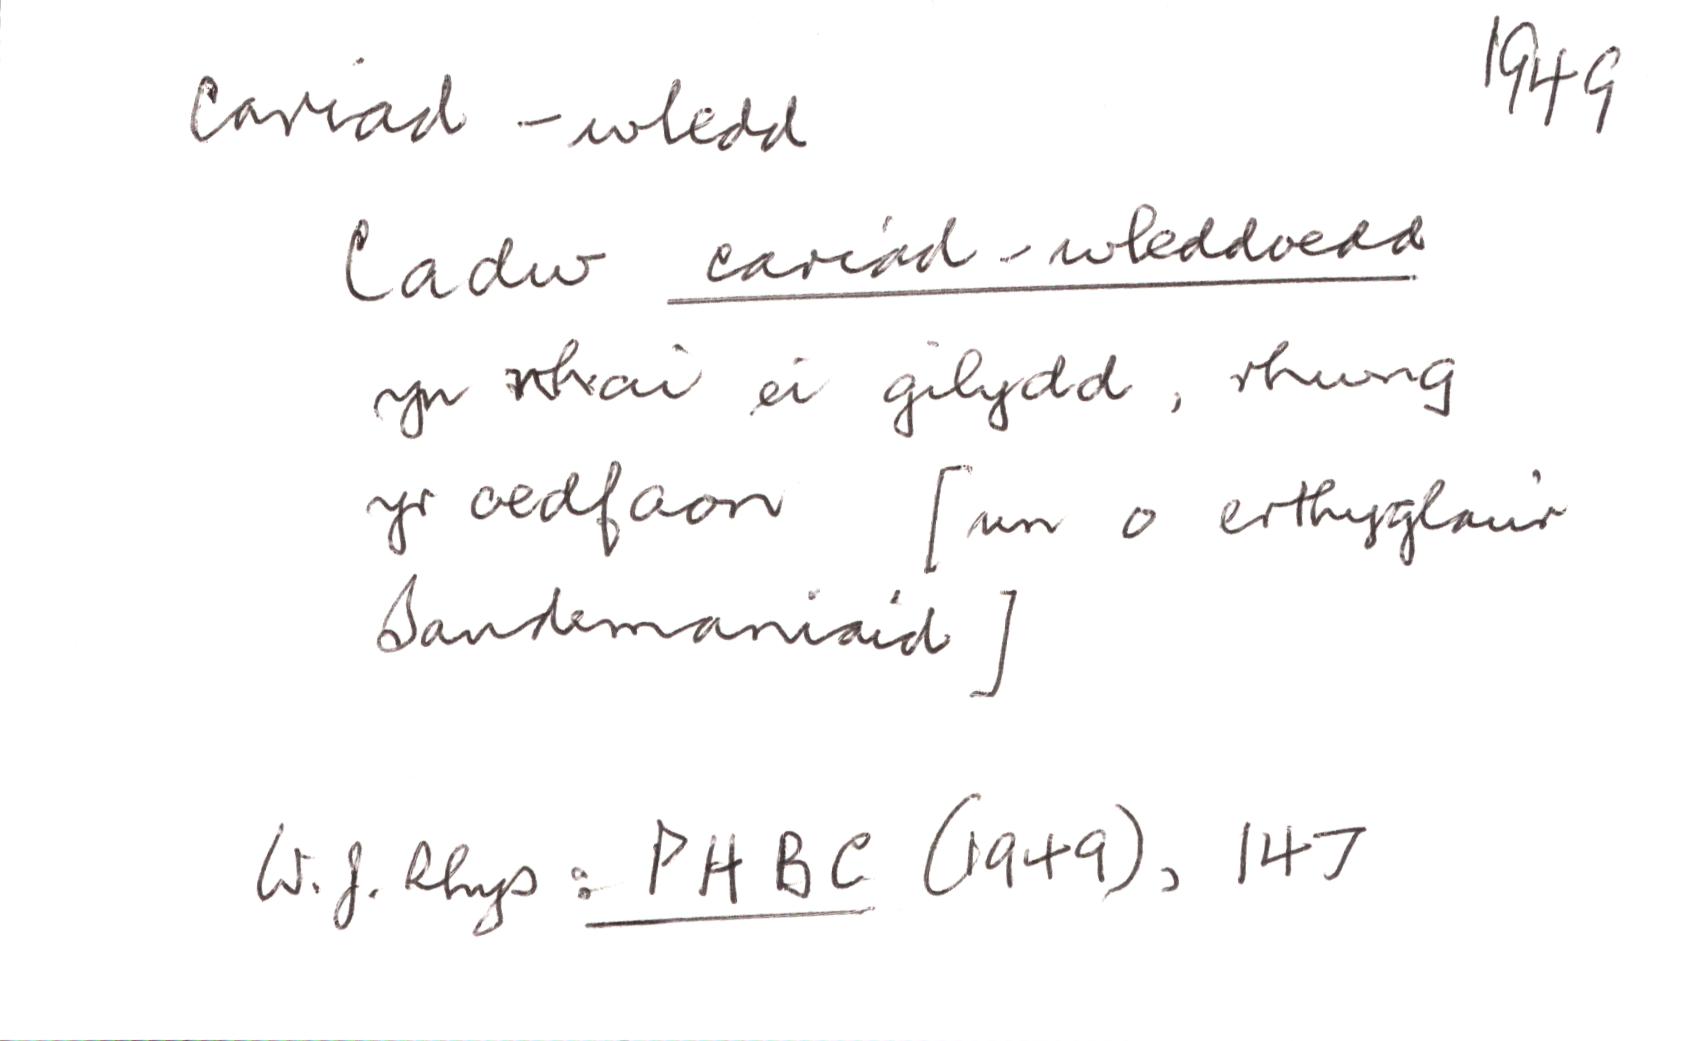 1949
cariad-wledd
Cadw cariad-wleddoedd
yn nhai ei gilydd, rhwng
yr oedfaon [un o erthyglau'r
Sandemaniaid]
W. J. Rhys: PHBC (1949), 147